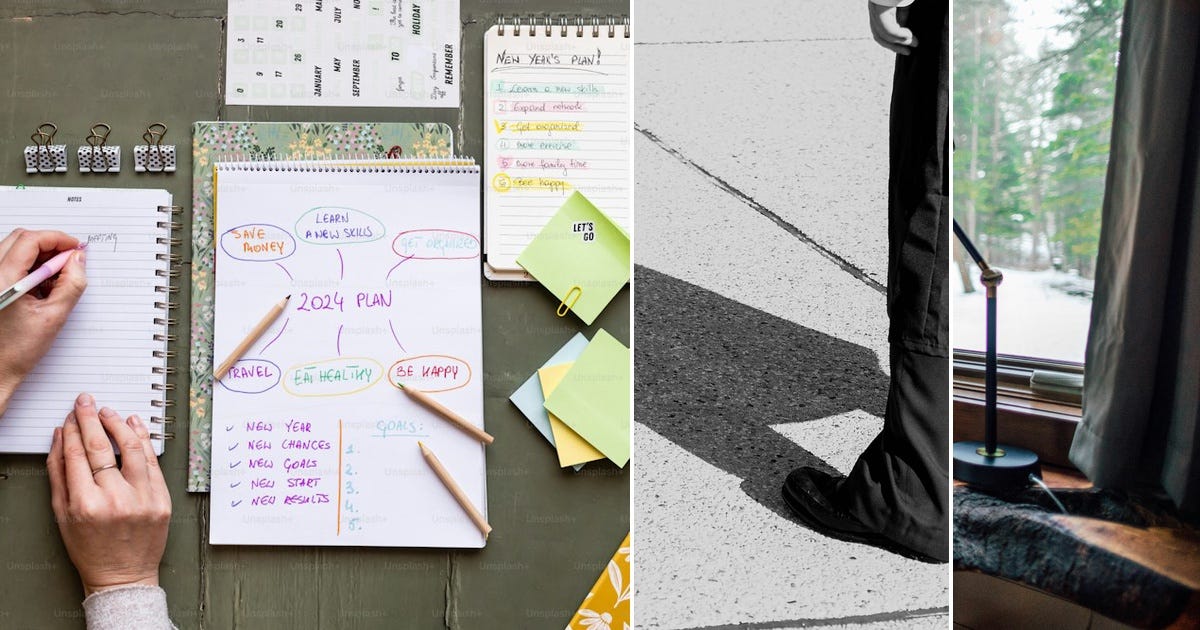 JANUARY
MAY
SEPTEMBER
JULY
HOLIDAY
TO
REMEMBER
NEW YEAR'S PLAN!
1 Learn a new skills
2 Expand network
3 Get organized
4 more exercise
5 more family time
6 Bee happy
LET'S
GO
NOTES
MEETING
SAVE
MONEY
LEARN
A NEW SKILLS
GET ORGANIZED
2024 PLAN
TRAVEL
EAT HEALTHY
BE HAPPY
NEW YEAR
NEW CHANCES
NEW GOALS
NEW START
NEW RESULTS
GOALS:
1.
2.
3.
4.
5.
Unsplash+